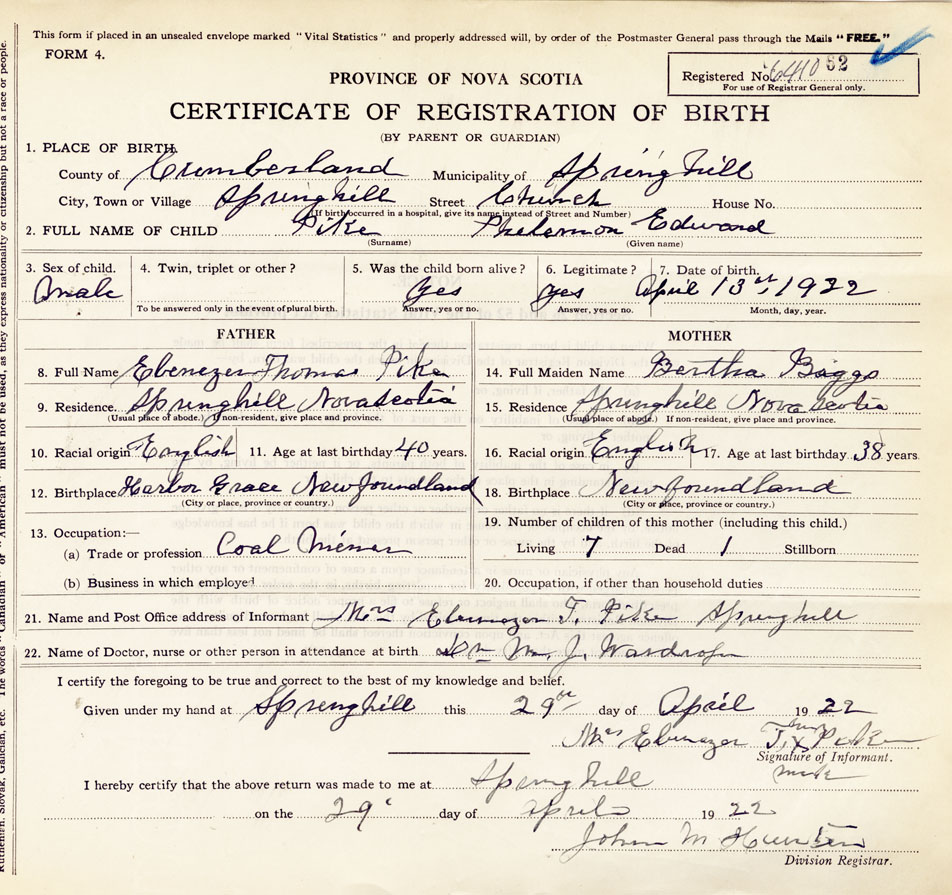 This form if placed in an unsealed envelope marked "Vital Statistics" and properly addressed will, by order of the Postmaster General pass through the Mails "FREE."
FORM 4.
Registered No. 6410 52
For use of Registrar General only.
PROVINCE OF NOVA SCOTIA
CERTIFICATE OF REGISTRATION OF BIRTH
(BY PARENT OR GUARDIAN)
1. PLACE OF BIRTH.
County of Cumberland Municipality of Springhill
City, Town or Village Springhill Street Church House No.
(If birth occurred in a hospital, give its name instead of Street and Number)
2. FULL NAME OF CHILD Pike Phelemon Edward
(Surname) (Given name)
3. Sex of child. 4. Twin, triplet or other? 5. Was the child born alive? 6. Legitimate? 7. Date of birth.
Male Yes Yes April 13th, 1922
To be answered only in the event of plural birth. Answer, yes or no. Answer, yes or no. Month, day, year.
FATHER MOTHER
8. Full Name Ebenezer Thomas Pike
9. Residence. Springhill Nova Scotia
(Usual place of abode.) If non-resident, give place and province.
10. Racial origin English 11. Age at last birthday 40 years.
12. Birthplace Harbor Grace Newfoundland
(City or place, province or country.)
13. Occupation:—
(a) Trade or profession Coal Miner
(b) Business in which employed
14. Full Maiden Name Bertha Baggs
15. Residence Springhill Nova Scotia
(Usual place of abode.) If non-resident, give place and province.
16. Racial origin English 17. Age at last birthday 38 years
18. Birthplace Newfoundland
(City or place, province or country.)
19. Number of children of this mother (including this child.)
Living 7 Dead 1 Stillborn
20. Occupation, if other than household duties
21. Name and Post Office address of Informant Mrs Ebenezer T. Pike Springhill
22. Name of Doctor, nurse or other person in attendance at birth Dr M. J. Wardrope
I certify the foregoing to be true and correct to the best of my knowledge and belief.
Given under my hand at Springhill this 29th day of April 1922
Mrs Ebenezer T. X Pike
her
Signature of Informant.
mark
I hereby certify that the above return was made to me at Springhill
on the 29 day of April 1922
John M Hunter
Division Registrar.
Ruthenian, Slovak, Galician, etc. The words "Canadian" or "American" must not be used, as they express nationality or citizenship but not a race or people.